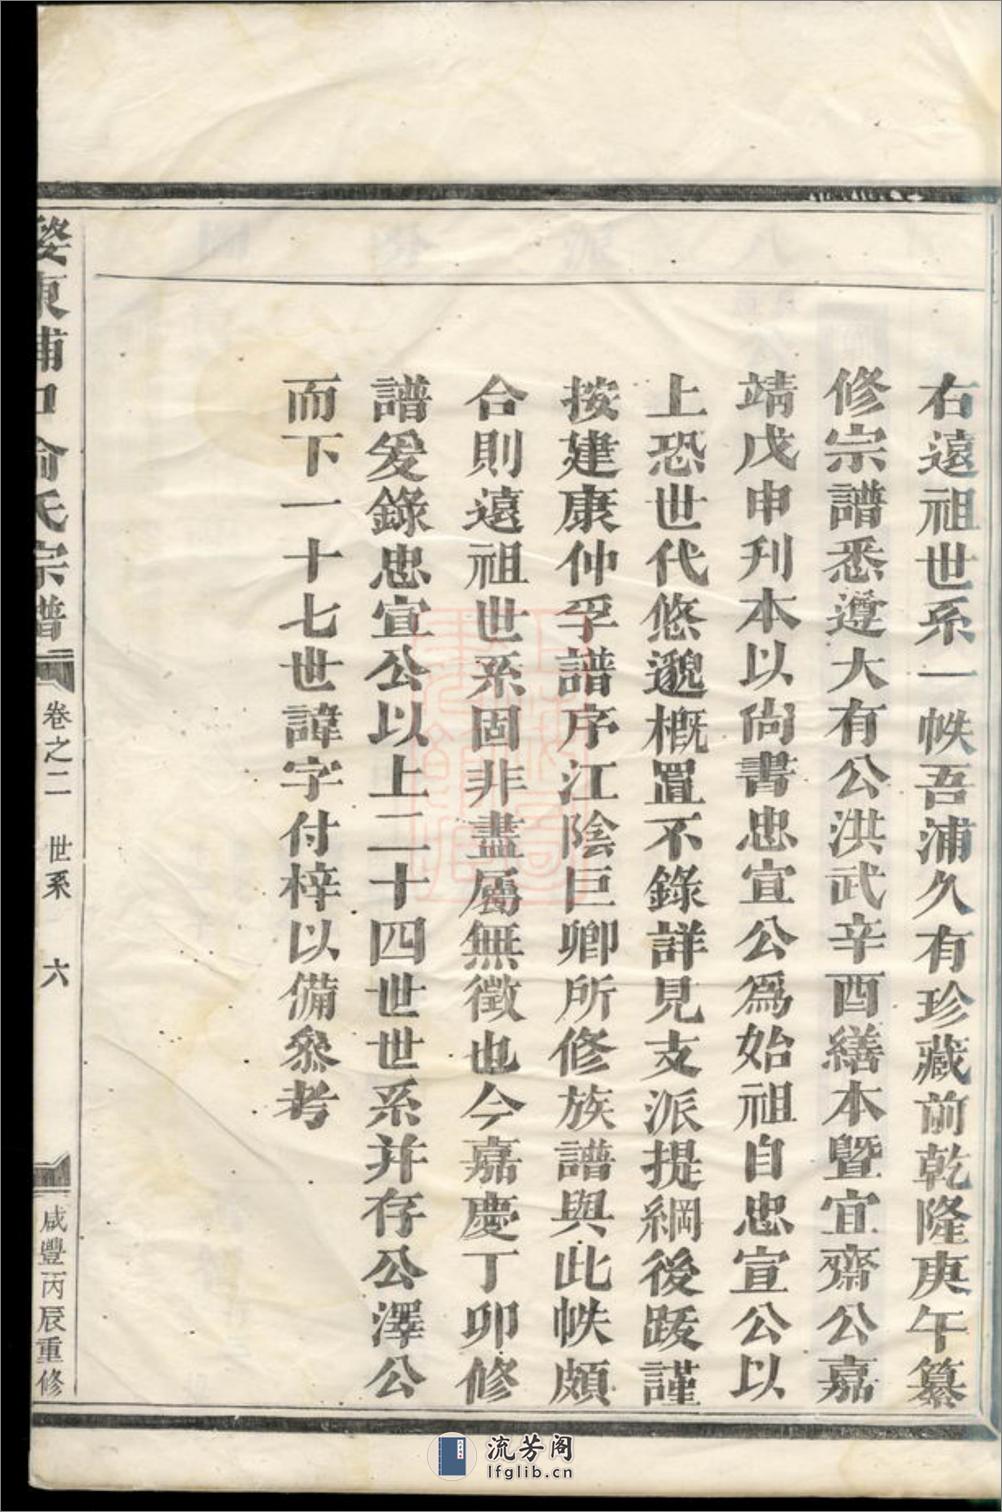 右遠祖世系一帙吾浦久有珍藏前乾隆庚午纂
修宗譜悉遵大有公洪武辛酉繕本暨宜齋公嘉
靖戊申刋本以尚書忠宣公爲始祖自忠宣公以
上恐世代悠邈槪置不錄詳見支派提綱後跋謹
按建康仲孚譜序江陰巨卿所修族譜與此帙頗
合則遠祖世系固非盡屬無徵也今嘉慶丁卯修
譜爰錄忠宣公以上二十四世世系并存公澤公
而下一十七世諱字付梓以備叅考
婺東浦口俞氏宗譜
卷之二 世系 六
咸豐丙辰重修
流芳阁
lfglib.cn